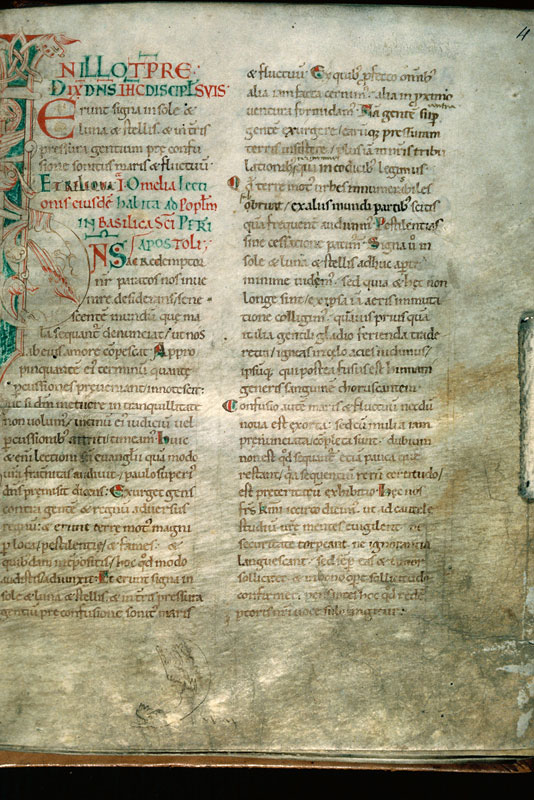 IN ILLO TPRE
DIX DNS IHC DISCIPLS SVIS
Erunt signa in sole &
luna & stellis & in tris
pressura gentium pre confu
sione sonitus maris & fluctuum.
ET RELIQUA. Omelia lecti
onis eiusdē habita ad poplm
IN BASILICA SCI PETRI
APOSTOLI.
DNS ac redemptor
nr paratos nos inue
nire desiderans, sene
scentē mundū que ma
la sequant denunciat, ut nos
ab eius amore cōpescat. Appro
pinquante ei terminū quante
pcussiones preueniant innotescit.
ut si dm metuere in tranquillitate
non uolum, uicinū ei iudiciū uel
pcussionibus attriti timeam. Huic
& eni lectioni sci euuangelii quā modo
ura fraternitas audiuit, paulo superi
dns premisit dicens. Exurget gens
contra gente & regnū aduersus
regnū. & erunt terre mot magni
p loca, pestilentie & fames. &
quibdam interpositis, hoc qd modo
audistis adiunxit. Et erunt signa in
sole & luna & stellis. & in tris pressura
gentiū pre confusione sonit maris
& fluctuū. Ex quib pfecto omib
alia iam facta cernim alia in pximo
uentura formidam. Nā gente sup
contra
gente exurgere, earūq pressuram
terris insistere, plus iā in nris tribu
lationib quā in codicib legimus.
Q terre mot urbes innumerabiles
obruat, ex aliis mundi partib scitis
quā frequent audiuim. Pestilentias
sine cessatione patim. Signa uo in
sole & luna & stellis adhuc apte
minime uidem. sed quia & hec non
longe sint, ex ipsa iā aeris inmuta
tione colligim. quāuis prius quā
italia gentili gladio ferienda trade
retur, igneas in celo acies uidimus,
ipsūq qui postea fusus est humani
generis sanguine choruscantem.
Confusio aute maris & fluctuū necdū
noua est exorta. sed cū multa iam
prenunciata cōpleta sunt. dubium
non est qd sequant etiā pauca que
restant, qa sequentiū rerū certitudo,
est preteritarū exhibitio. Hec nos
frs kmi iccirco dicim. ut ad cautele
studiū ure mentes euigilent. ne
securitate torpeant. ne ignorantia
languescant. sed semp eas & timor
sollicitet. & in bono ope sollicitudo
confirmet. pensantes hoc qd rede
ptoris nri uoce subiungitur.